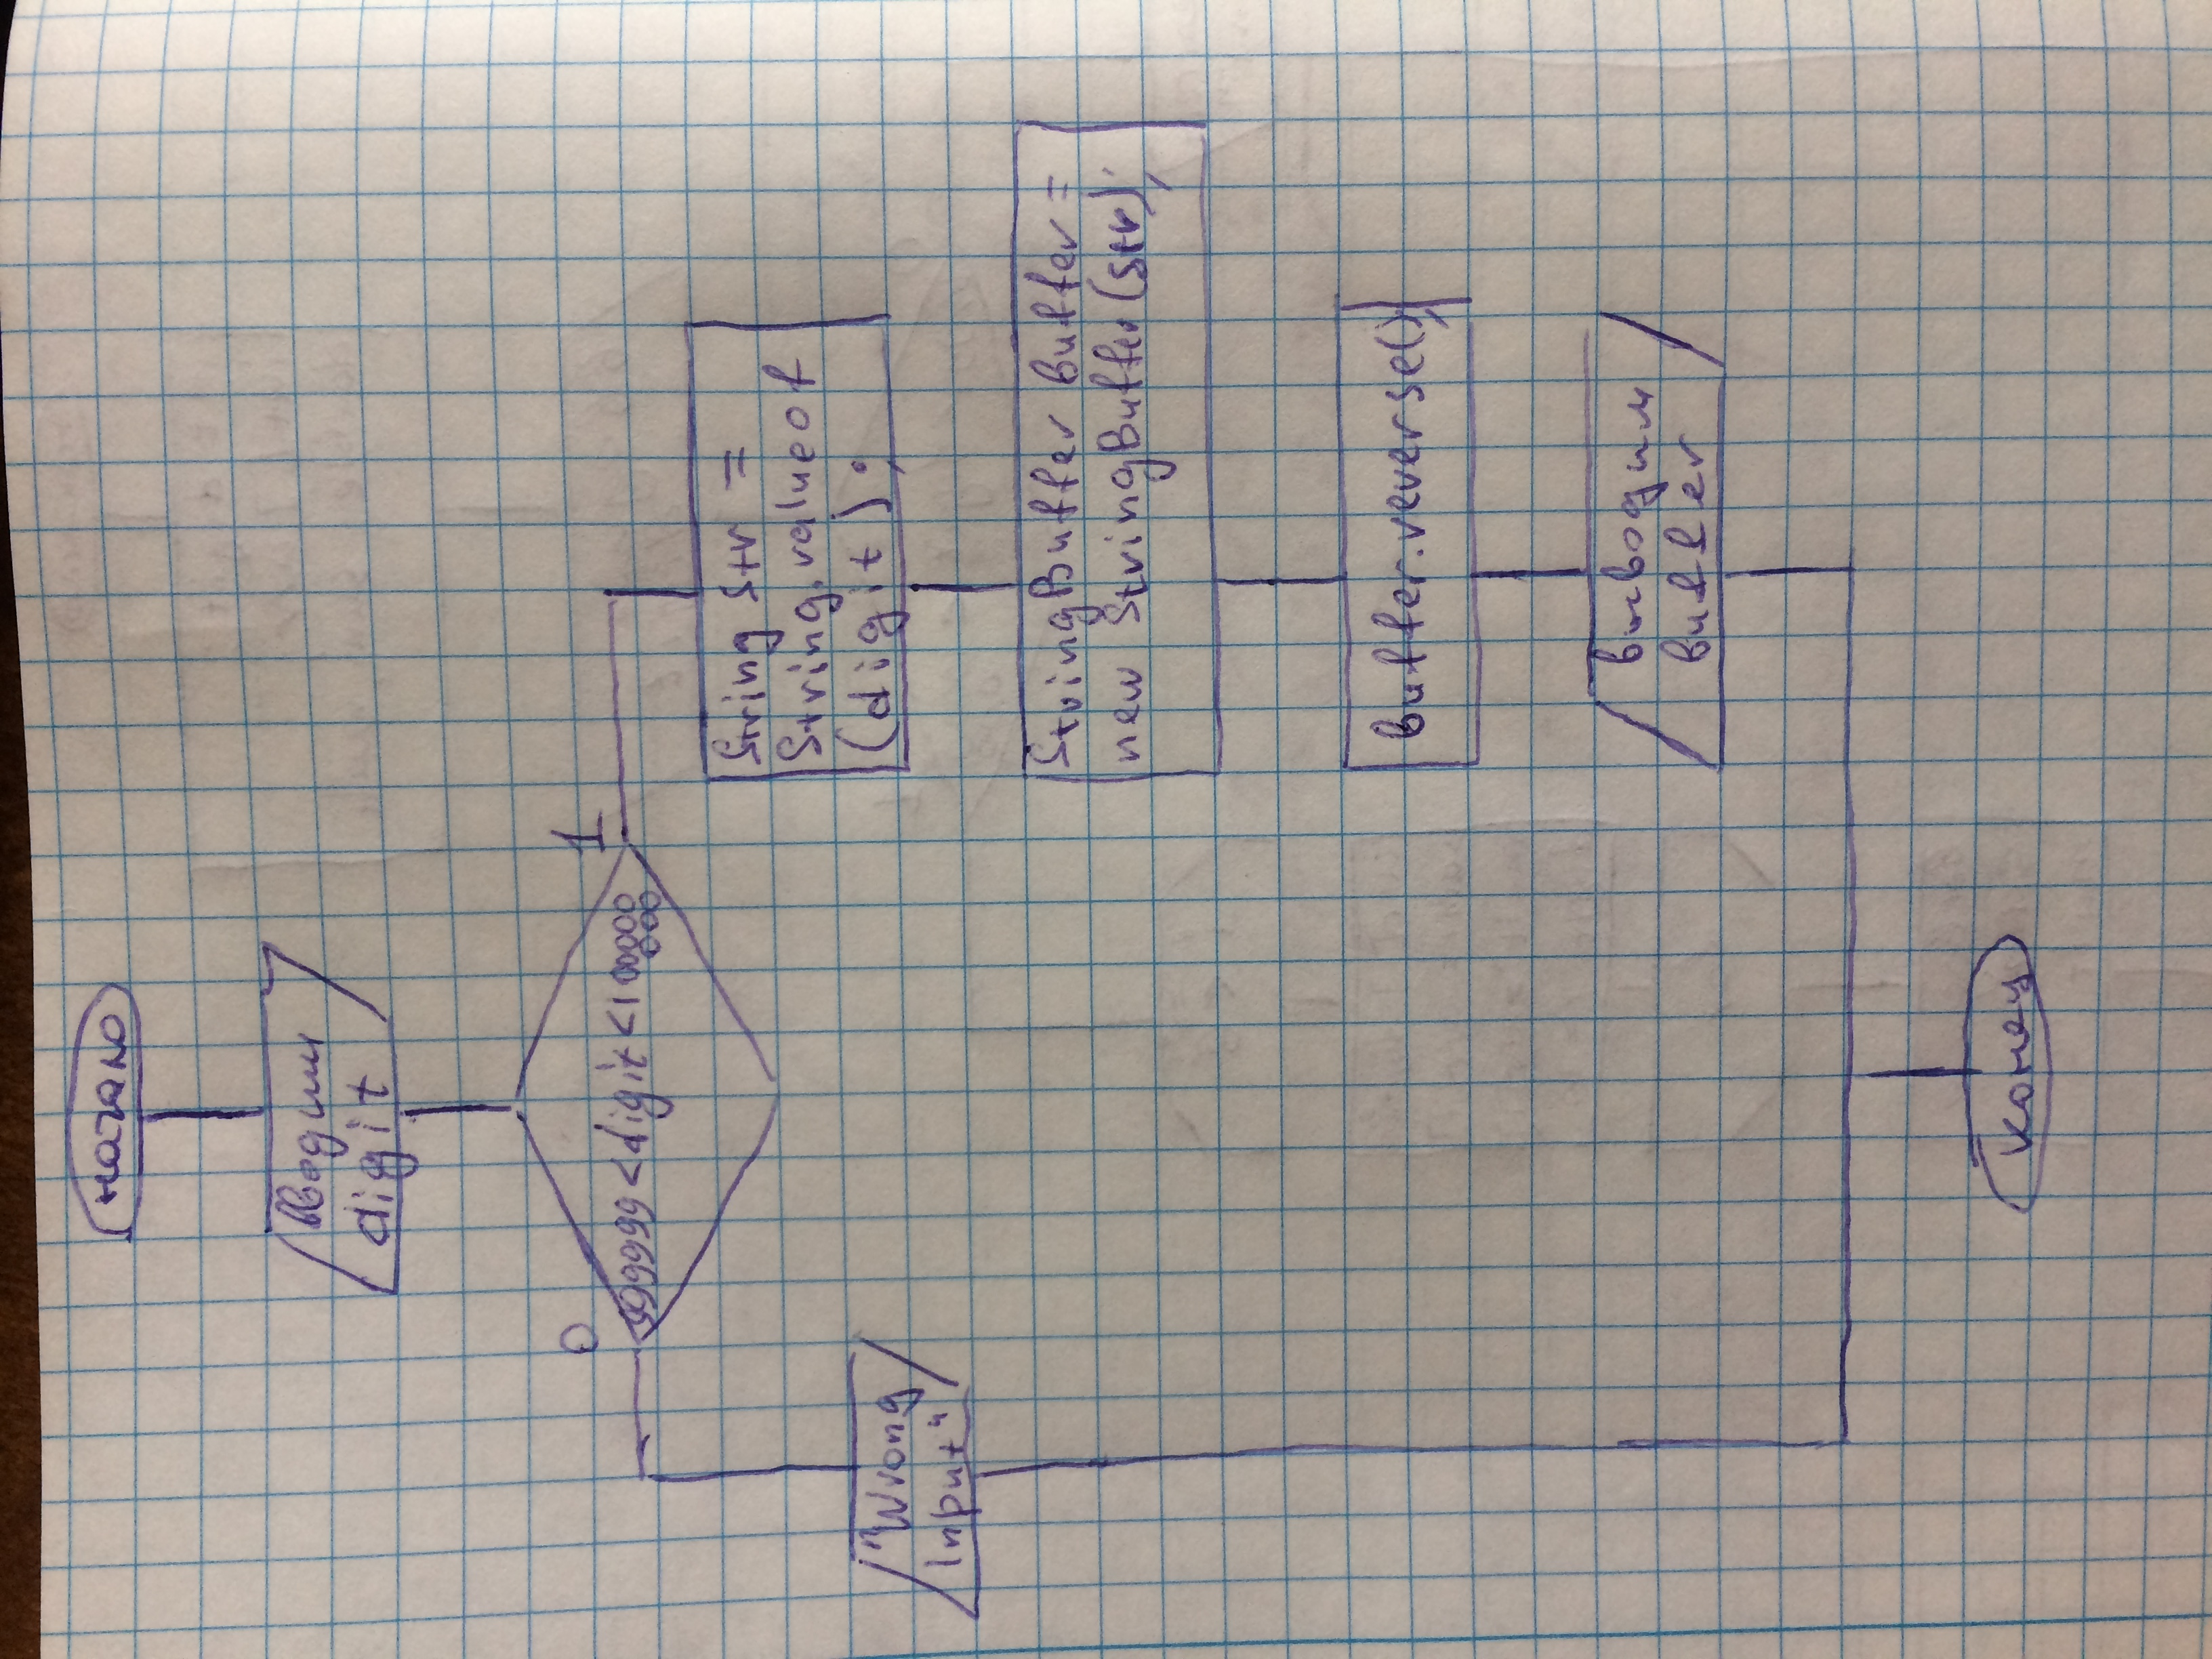 начало
Вводим
digit
0
1
999999 < digit < 100000
000
String str =
String.valueof
(digit);
"Wrong
Input"
StringBuffer Buffer =
new StringBuffer(str);
Buffer.reverse();
выводим
Buffer
конец